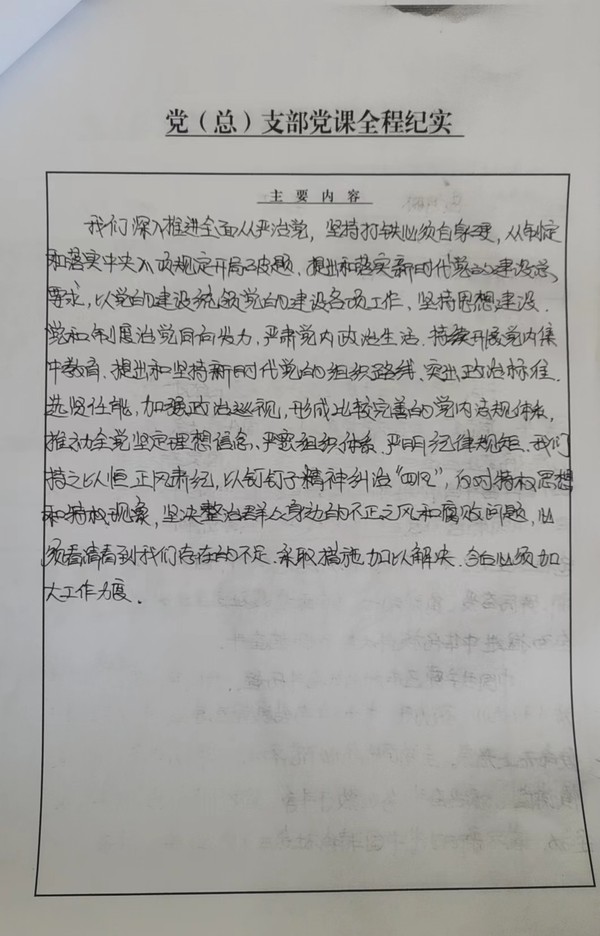 党（总）支部党课全程纪实
主要内容
我们深入推进全面从严治党，坚持打铁必须自身硬，从制定
和落实中央八项规定开局破题、提出和落实新时代党的建设总
要求，以党的建设统领党的建设各项工作、坚持思想建设
党和制度治党同向发力，严肃党内政治生活、持续开展党内集
中教育、提出和坚持新时代党的组织路线、突出政治标准
选贤任能，加强政治巡视，形成比较完善的党内法规体系，
推动全党坚定理想信念、严密组织体系、严明纪律规矩、我们
持之以恒正风肃纪，以钉钉子精神纠治“四风”，反对特权思想
和特权现象，坚决整治群众身边的不正之风和腐败问题，必
须看清看到我们存在的不足、采取措施加以解决、今后必须加
大工作力度．